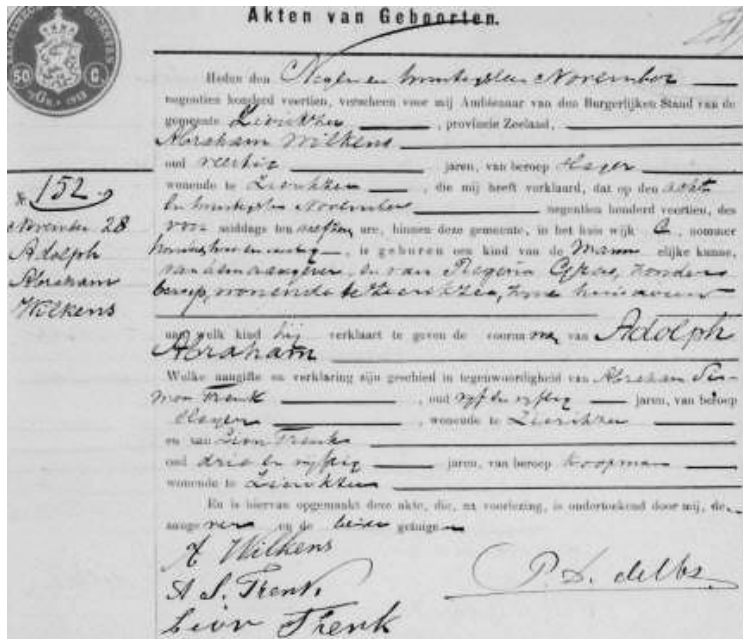 Akten van Geboorten.
50 C.
Heden den Negen en twintigsten November
negentien honderd veertien, verscheen voor mij Ambtenaar van den Burgerlijken Stand van de
gemeente Zierikzee, provincie Zeeland,
Abraham Wilkens
oud veertig jaren, van beroep slager
wonende te Zierikzee, die mij heeft verklaard, dat op den acht
en twintigsten November negentien honderd veertien, des
voor middags ten ure, binnen deze gemeente, in het huis wijk nommer
is geboren een kind van de Mann elijke kunne,
van hem aangever, en van Regina zonder
beroep, wonende te Zierikzee, zijne huisvrouw
aan welk kind hij verklaart te geven de voorna men van Adolph
Abraham
Welke aangifte en verklaring zijn geschied in tegenwoordigheid van Abraham Si-
mon Frenk, oud vijf en vijftig jaren, van beroep
slager, wonende te Zierikzee
en van Lion Frenk
oud drie en vijftig jaren, van beroep Koopman
wonende te Zierikzee
En is hiervan opgemaakt deze akte, die, na voorlezing, is onderteekend door mij, den
aange ver en de beide getuigen
A Wilkens
A S. Frenk.
Lion Frenk
№ 152
November 28
Adolph
Abraham
Wilkens